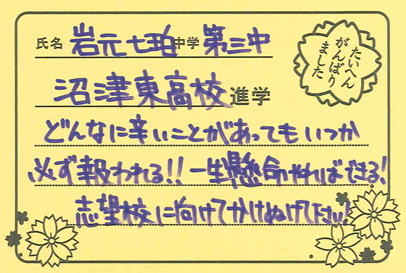 氏名 岩元七珀 中学 第三中
沼津東高校進学
どんなに辛いことがあってもいつか
必ず報われる!!一生懸命やればできる!
志望校に向けてかけぬけて下さい!
たいへん
がんばり
ました